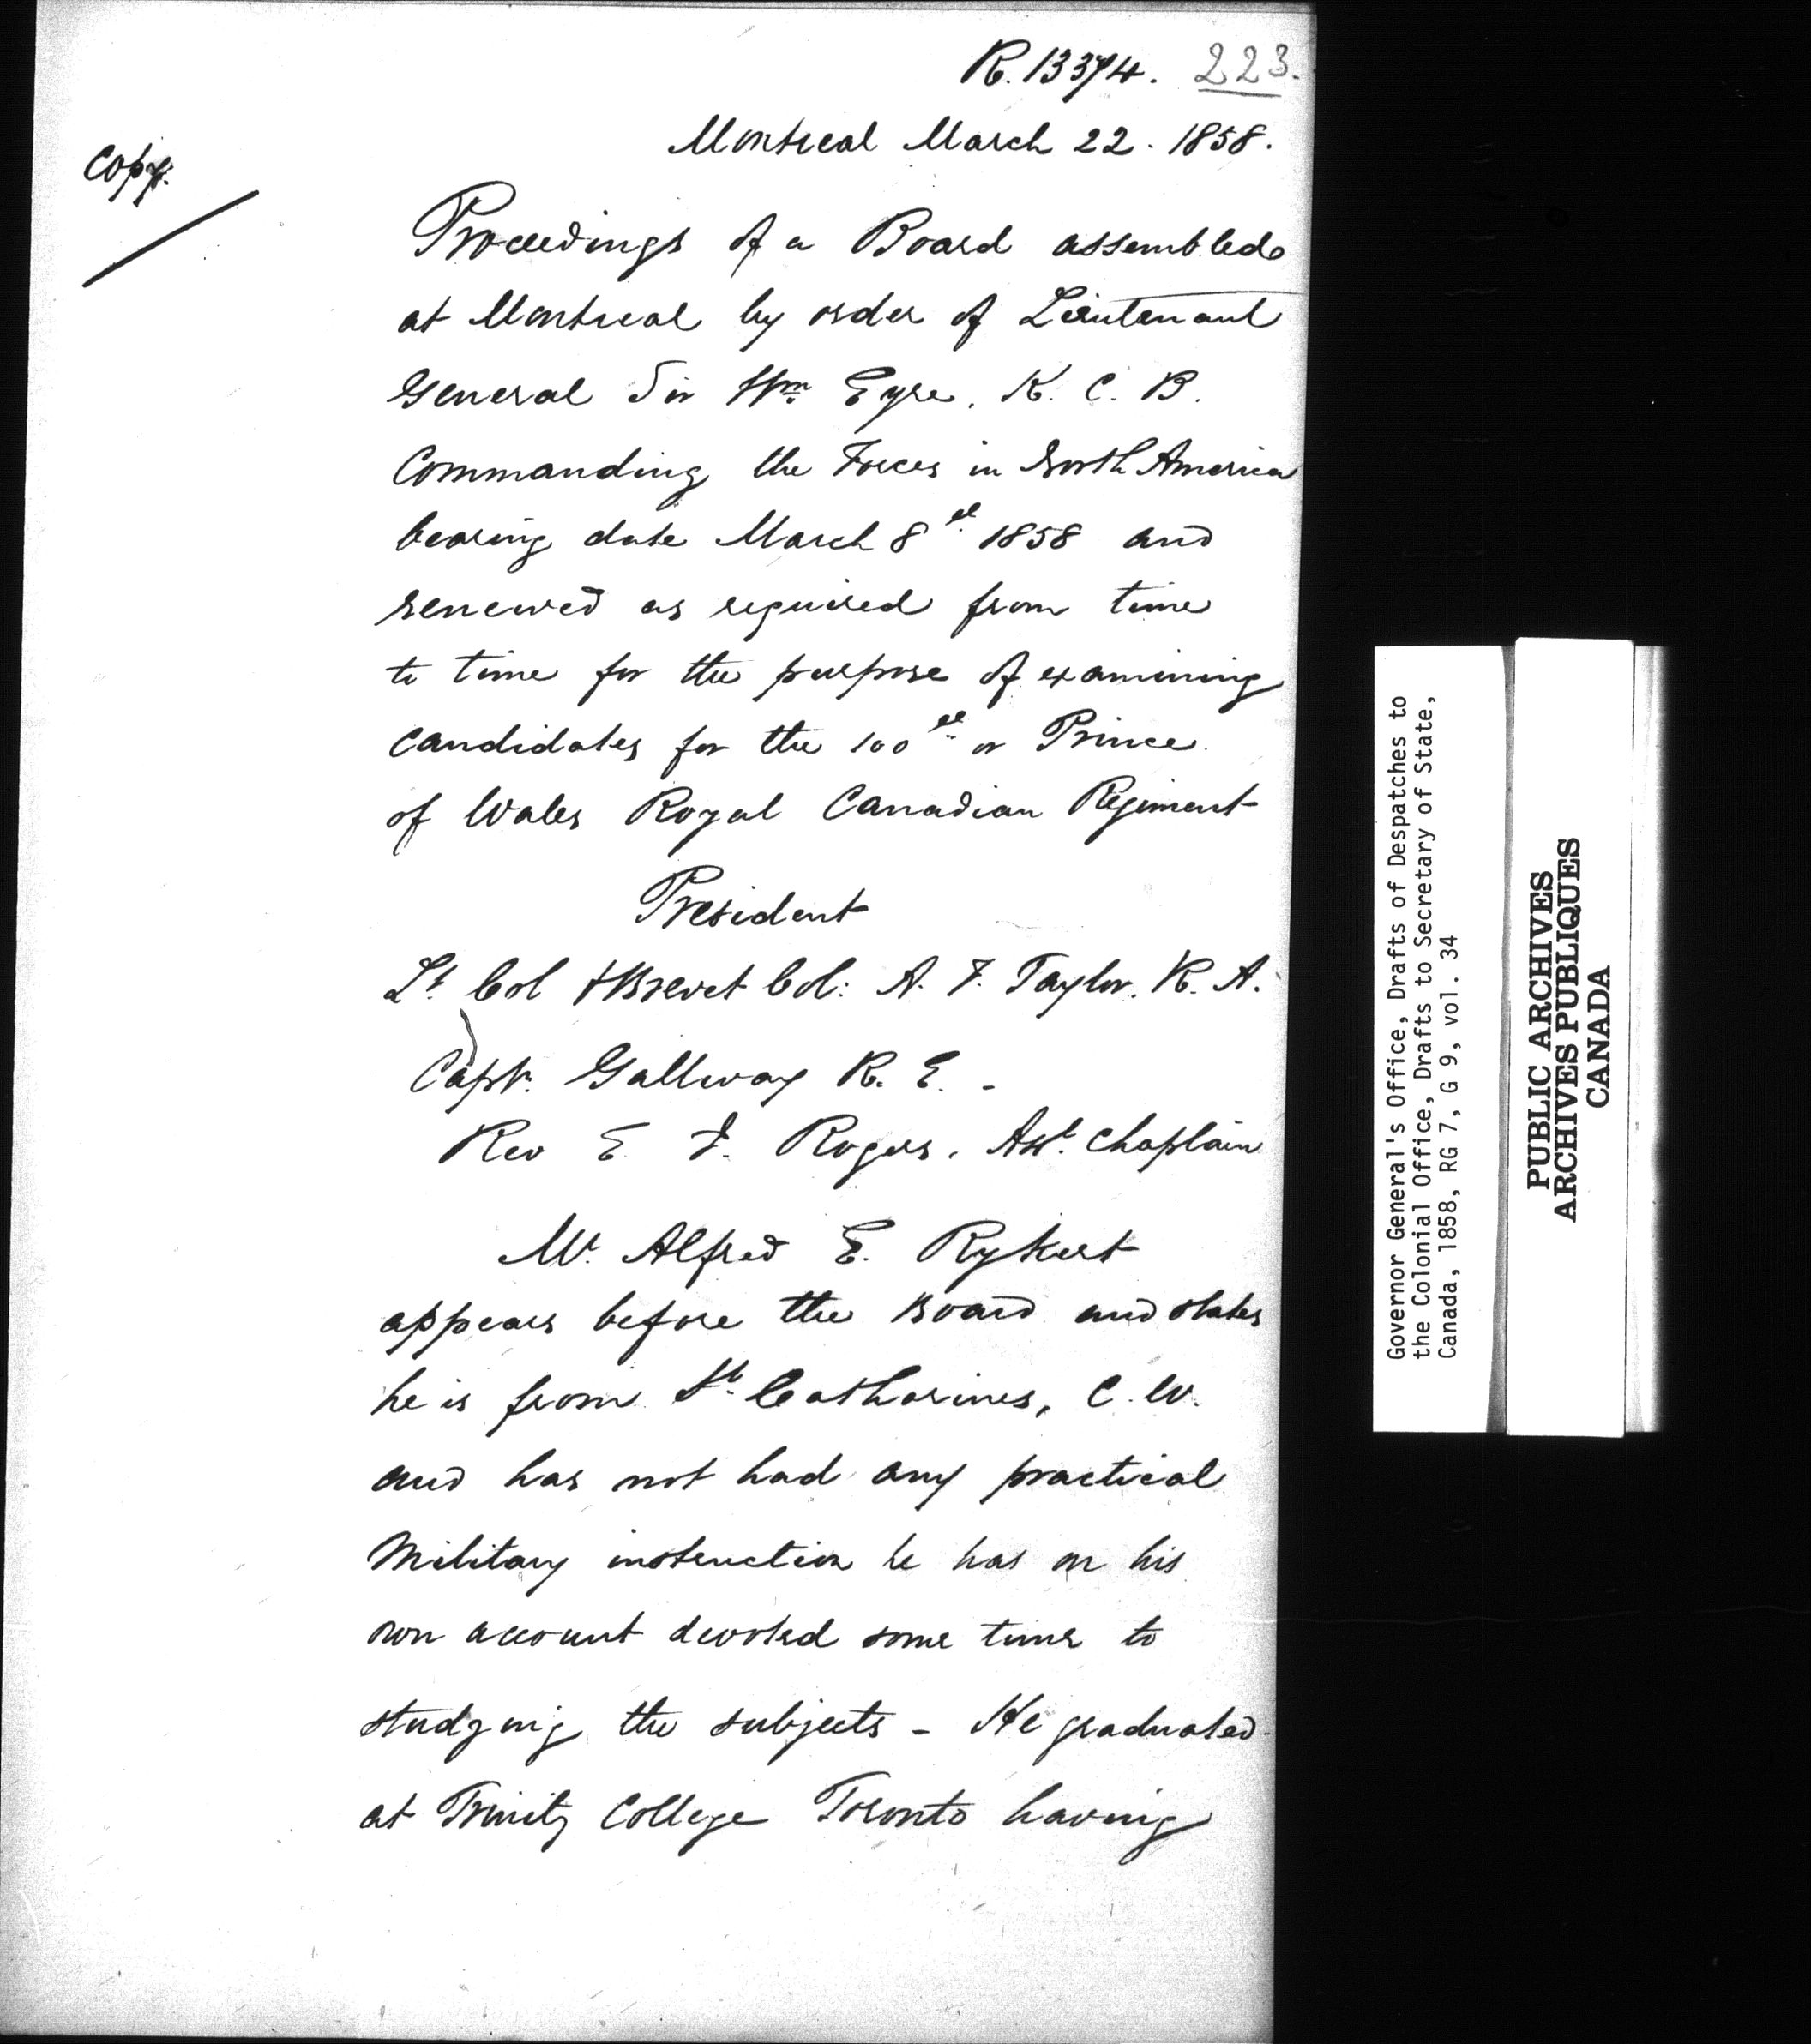 R. 13374. 223.
Montreal March 22. 1858.
Copy.
Proceedings of a Board assembled
at Montreal by order of Lieutenant
General Sir Wm Eyre. K. C. B.
Commanding the Forces in North America
bearing date March 8th 1858 and
renewed as required from time
to time for the purpose of examining
candidates for the 100th or Prince
of Wales Royal Canadian Regiment
President
Lt Col & Brevet Col: A. F. Taylor. R. A.
Capt. Gallway R. E. -
Rev E. J. Rogers. Asst. Chaplain
Mr. Alfred E. Rykert
appears before the Board and states
he is from St. Catharines, C. W.
and has not had any practical
Military instruction he has on his
own account devoted some time to
studying the subjects - He graduated
at Trinity College Toronto having
Governor General's Office, Drafts of Despatches to
the Colonial Office, Drafts to Secretary of State,
Canada, 1858, RG 7, G 9, vol. 34
PUBLIC ARCHIVES
ARCHIVES PUBLIQUES
CANADA